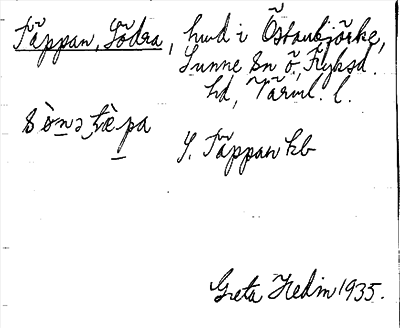 Täppan, Södra, hmd i Östanbjörke,
Sunne sn ö, Fryksd.
hd, Värml. l.
S. Täppan kb
Greta Hedin 1935.